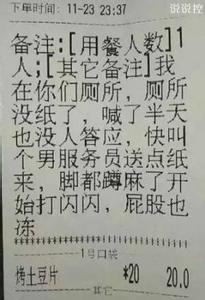 说说控
下单时间: 11-23 23:37
备注:[用餐人数]1
人;[其它备注]我
在你们厕所，厕所
没纸了，喊了半天
也没人答应，快叫
个男服务员送点纸
来，脚都蹲麻了开
始打闪闪，屁股也
冻
1号口袋
烤土豆片 *20 20.0
其它